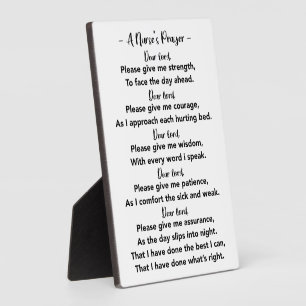 - A Nurse's Prayer -
Dear Lord,
Please give me strength,
To face the day ahead.
Dear Lord,
Please give me courage,
As I approach each hurting bed.
Dear Lord,
Please give me wisdom,
With every word i speak.
Dear Lord,
Please give me patience,
As I comfort the sick and weak.
Dear Lord,
Please give me assurance,
As the day slips into night.
That I have done the best I can,
That I have done what's right.